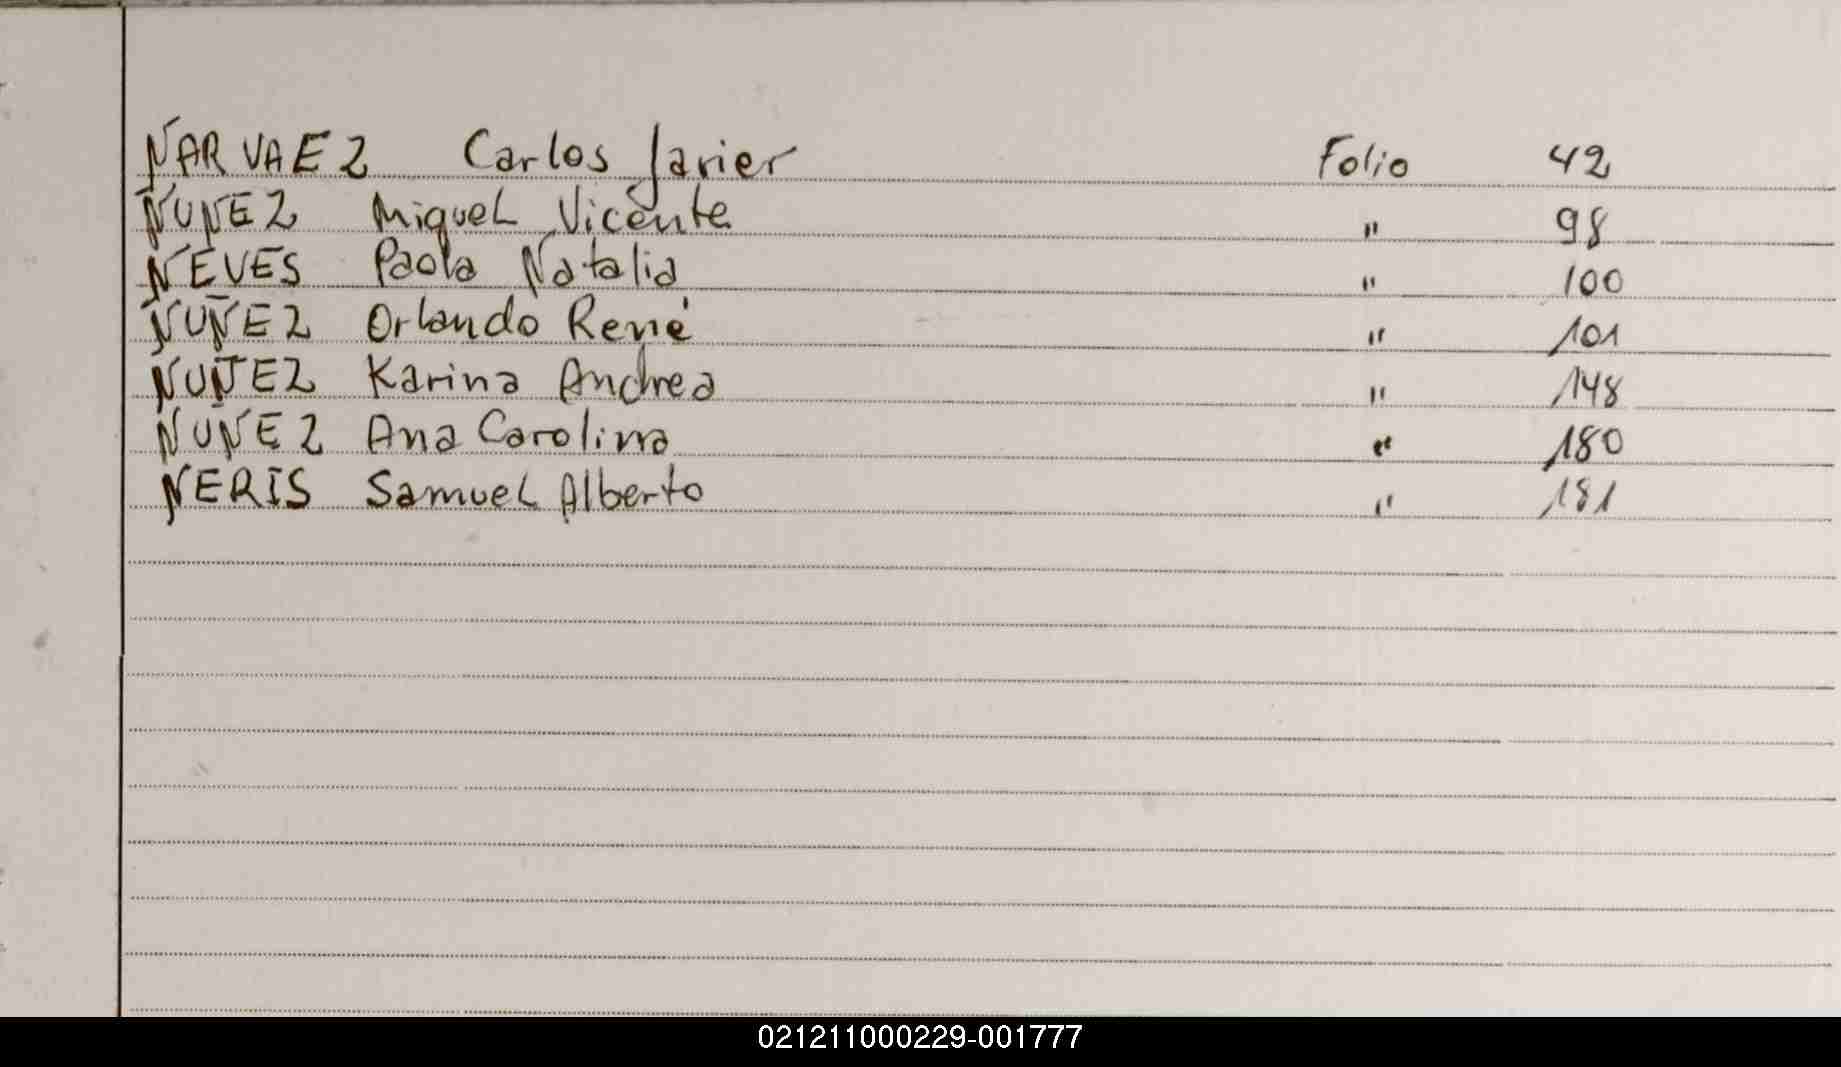 NARVAEZ Carlos Javier Folio 42
NUÑEZ Miguel Vicente " 98
NEVES Paola Natalia " 100
NUÑEZ Orlando René " 101
NUÑEZ Karina Andrea " 148
NUÑEZ Ana Carolina " 180
NERIS Samuel Alberto " 181
021211000229-001777